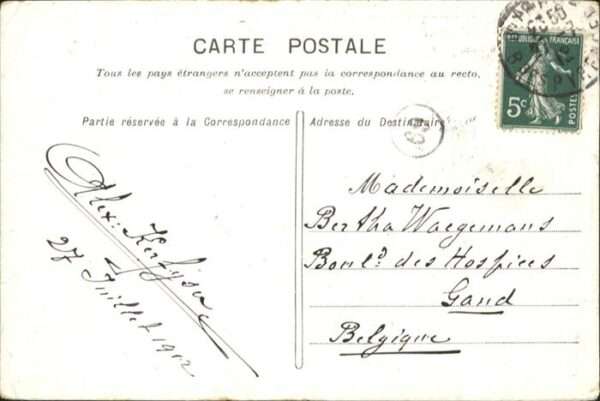 CARTE POSTALE
Tous les pays étrangers n'acceptent pas la correspondance au recto,
se renseigner à la poste.
Partie réservée à la Correspondance
Adresse du Destinataire
REPUBLIQUE FRANÇAISE
5c
POSTES
Alex:
27 Juillet 1912
Mademoiselle
Bertha Waegemans
Boul.d des Hospices
Gand
Belgique